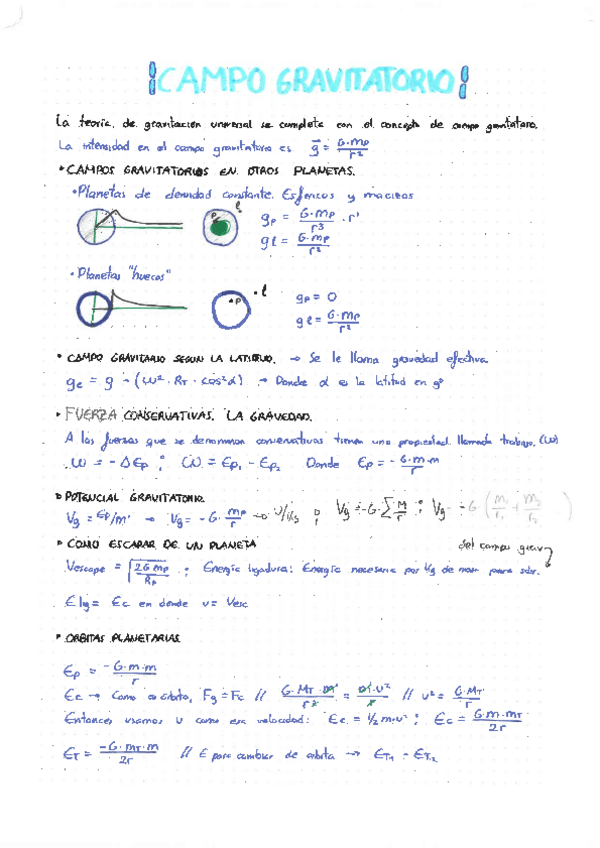 ¦CAMPO GRAVITATORIO¦
La teoria de gravitación universal se completa con el concepto de campo gravitatorio.
La intensidad en el campo gravitatorio es g⃗ = G·mp/r²
• CAMPOS GRAVITATORIOS EN OTROS PLANETAS.
• Planetas de densidad constante. Esfericos y macizos
P l
gp = G·mp/r³ · r'
gl = G·mp/r²
• Planetas "huecos"
•P • l
gp = 0
gl = G·mp/r²
• CAMPO GRAVITARIO SEGUN LA LATITUD. → Se le llama gravedad efectiva.
ge = g - (ω² · RT · cos²α) → Donde α es la latitud en gº
• FUERZA CONSERVATIVAS. LA GRAVEDAD.
A las fuerzas que se denominan conservativas tienen una propiedad llamada trabajo. (W)
W = - ΔEp ; W = Ep₁ - Ep₂ Donde Ep = - G·m·m/r
• POTENCIAL GRAVITATORIO.
Vg = Ep/m' → Vg = - G · mp/r → J/kg ; Vg = -G·∑ M/r ; Vg = -G (m₁/r₁ + m₂/r₂ )
• COMO ESCAPAR DE UN PLANETA
del campo grav
Vescape = √2G mp/Rp ; Energía ligadura: Energía necesaria por kg de masa para salir.
Elg = Ec en donde v = Vesc
• ORBITAS PLANETARIAS
Ep = -G·m·m/r
Ec → Como es orbita, Fg = Fc // G·MT·m/r² = m·v²/r // v² = G·MT/r
Entonces usamos v como esa velocidad: Ec = 1/2 m·v² ; Ec = G·m·mT/2r
ET = -G·mT·m/2r // E para cambiar de orbita → ET₁ - ET₂